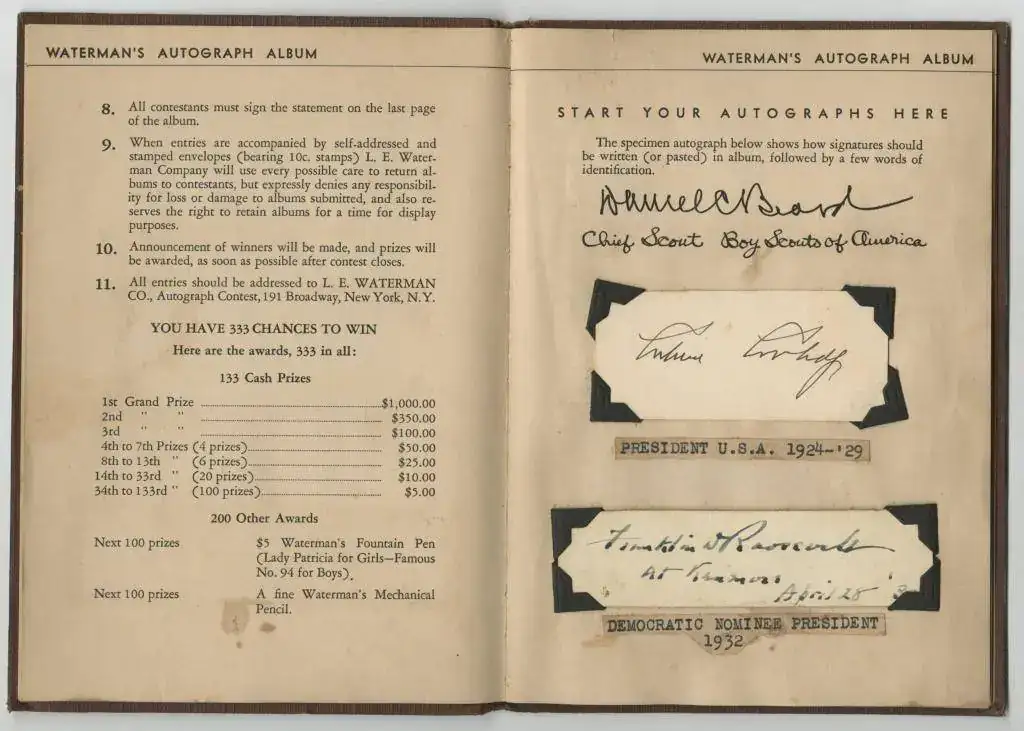 WATERMAN'S AUTOGRAPH ALBUM
8. All contestants must sign the statement on the last page
of the album.
9. When entries are accompanied by self-addressed and
stamped envelopes (bearing 10c. stamps) L. E. Water-
man Company will use every possible care to return al-
bums to contestants, but expressly denies any responsibil-
ity for loss or damage to albums submitted, and also re-
serves the right to retain albums for a time for display
purposes.
10. Announcement of winners will be made, and prizes will
be awarded, as soon as possible after contest closes.
11. All entries should be addressed to L. E. WATERMAN
CO., Autograph Contest, 191 Broadway, New York, N.Y.
YOU HAVE 333 CHANCES TO WIN
Here are the awards, 333 in all:
133 Cash Prizes
1st Grand Prize $1,000.00
2nd " " $350.00
3rd " " $100.00
4th to 7th Prizes (4 prizes) $50.00
8th to 13th " (6 prizes) $25.00
14th to 33rd " (20 prizes) $10.00
34th to 133rd " (100 prizes) $5.00
200 Other Awards
Next 100 prizes $5 Waterman's Fountain Pen
(Lady Patricia for Girls—Famous
No. 94 for Boys).
Next 100 prizes A fine Waterman's Mechanical
Pencil.
WATERMAN'S AUTOGRAPH ALBUM
START YOUR AUTOGRAPHS HERE
The specimen autograph below shows how signatures should
be written (or pasted) in album, followed by a few words of
identification.
Daniel C Beard
Chief Scout Boy Scouts of America
Calvin Coolidge
PRESIDENT U.S.A. 1924-'29
Franklin D Roosevelt
At
April 28
DEMOCRATIC NOMINEE PRESIDENT
1932